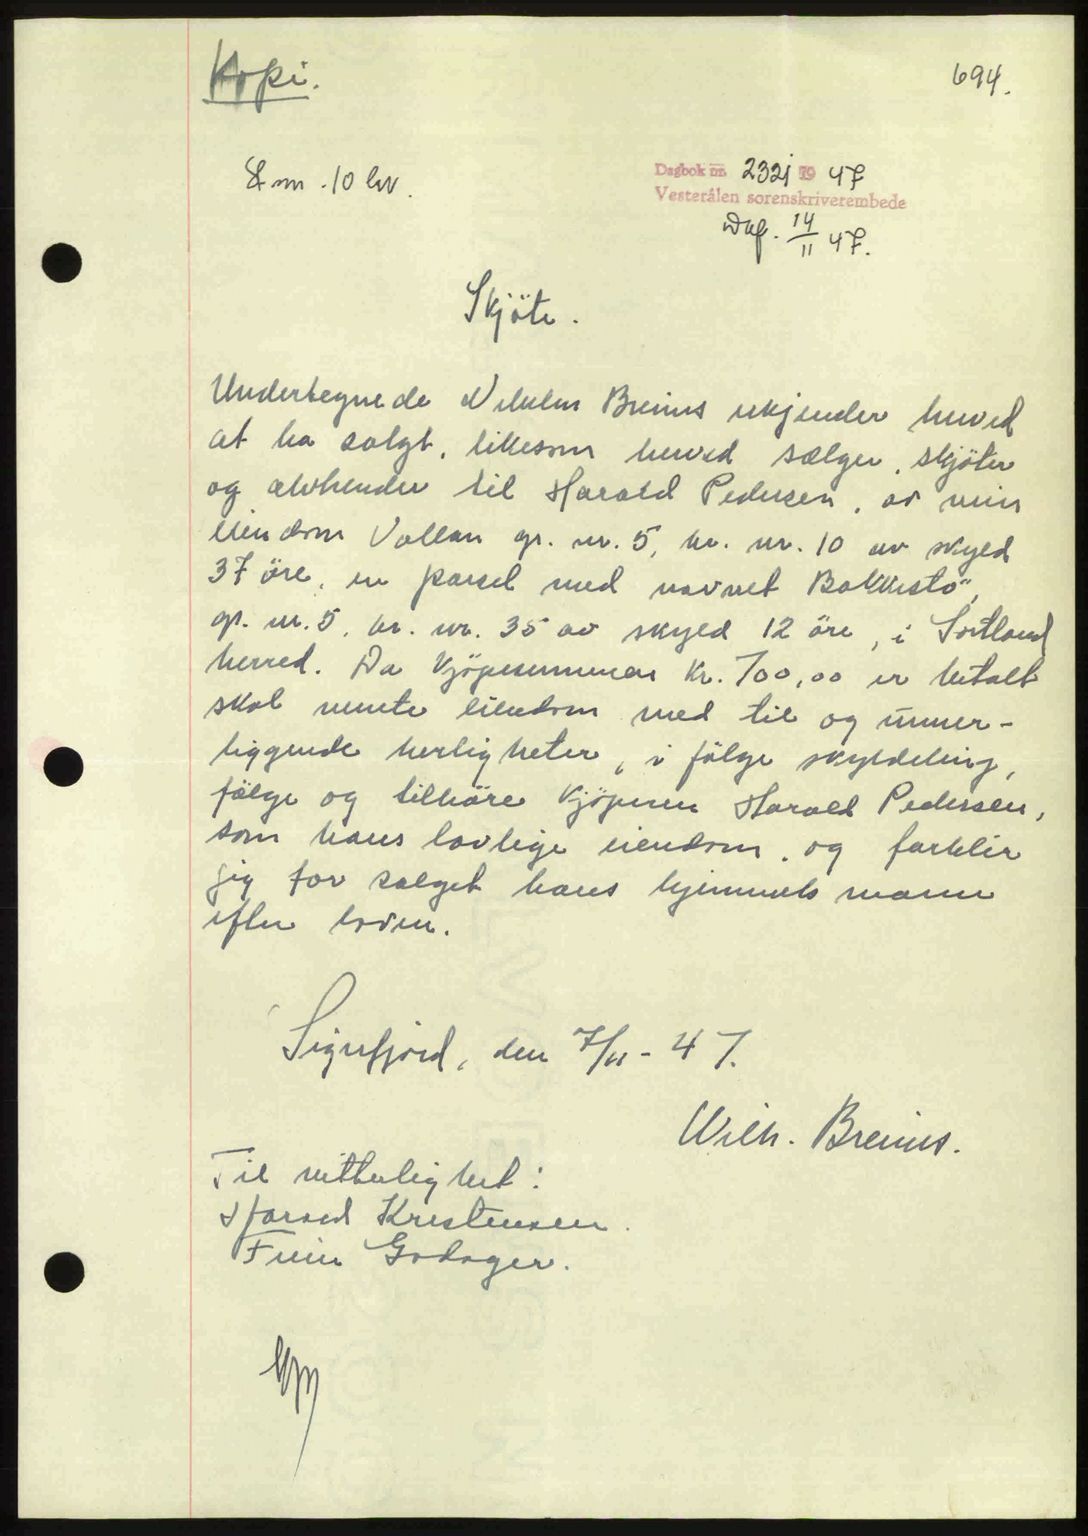 Kopi.
694.
St.m. 10 kr.
Dagbok nr. 2321 1947
Vesterålen sorenskriverembede
Daf. 14/11 47.
Skjöte.
Undertegnede Vilhelm Breines erkjender herved
at ha solgt, likesom herved sælger, skjöter
og avhender til Harald Pedersen, av min
eiendom Vollan gr. nr. 5, br. nr. 10 av skyld
37 öre, en parsel med navnet Bakkestö"
gr. nr. 5, br. nr. 35 av skyld 12 öre, i Sortland
herred. Da kjöpesummen kr. 700,00 er betalt
skal nevnte eiendom med til og under-
liggende herligheter, i fölge skylddeling,
fölge og tilhöre kjöperen Harald Pedersen,
som hans lovlige eiendom, og forblir
jeg for salget hans hjemmels mann
efter loven.
Sigerfjord, den 7/11 - 47.
Wilh. Breines.
Til vitterlighet:
Harald Kristensen.
Finn Godager.